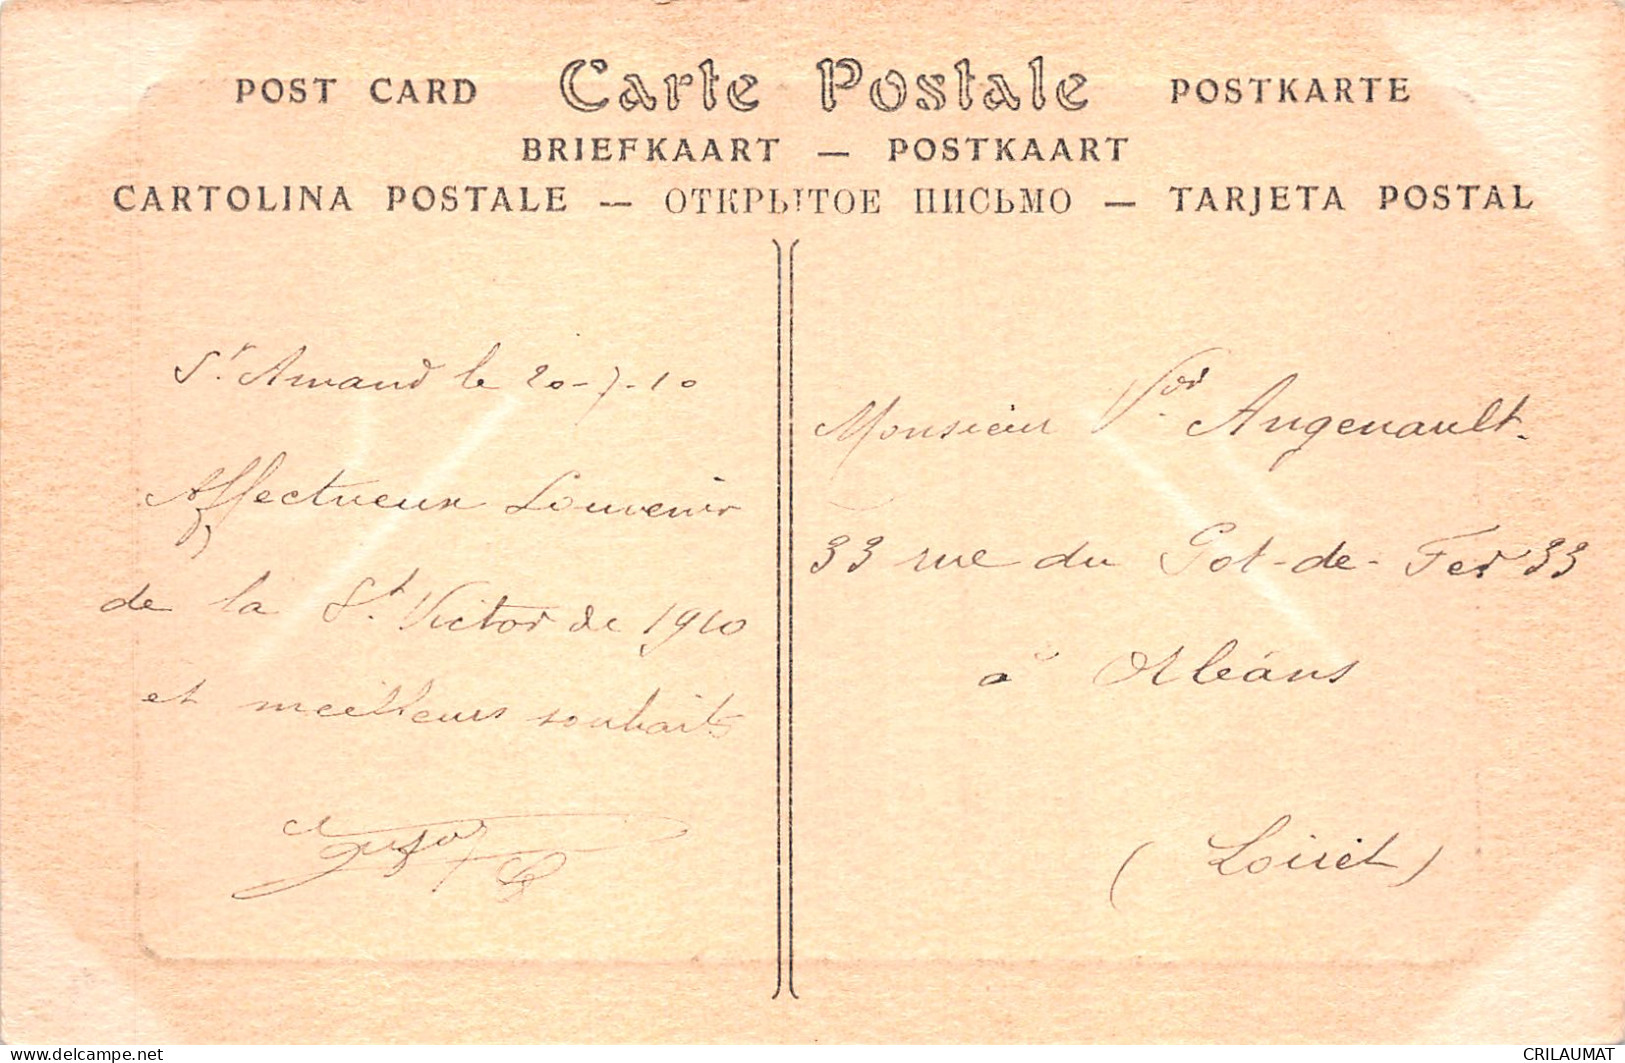 POST CARD Carte Postale POSTKARTE
BRIEFKAART — POSTKAART
CARTOLINA POSTALE — ОТКРЫТОЕ ПИСЬМО — TARJETA POSTAL
St. Amand le 20-7-10
Affectueux Souvenir
de la St. Victor de 1910
et meilleurs souhaits
Monsieur Vor. Angenault.
33 rue du Pot-de-Fer 33
à Orléans
(Loiret)
www.delcampe.net
CRILAUMAT